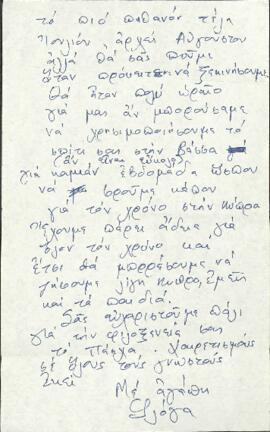 τό πιό πιθανόν τέλη
Ἰουλίου ἀρχές Αὐγούστου
ἀλλά θά σᾶς ποῦμε
ὅταν πρόκειται νά ξεκινήσουμε
Θά ἦταν πολύ ὡραῖο
γιά μας ἄν μπορούσαμε
νά χρησιμοποιήσουμε τό
σπίτι σας στήν Βάσσα
(ἄν εἶναι εὔκολο)
γιά καμιάν ἑβδομάδα ὥσπου
νά βροῦμε κάπου
γιά τόν χρόνο στήν Χώρα
Ἔχουμε πάρει ἄδεια γιά
ὅλον τόν χρόνο καί
ἔτσι θά μπορέσουμε νά
ζήσουμε λίγη Κύπρο, Ἐμεῖς
καί τά παιδιά.
Σᾶς εὐχαριστοῦμε πάλι
γιά τήν φιλοξενεία σας
τό Πάσχα. Χαιρετισμούς
σέ ὅλους τούς γνωστούς
ἐκεῖ
Μέ ἀγάπη